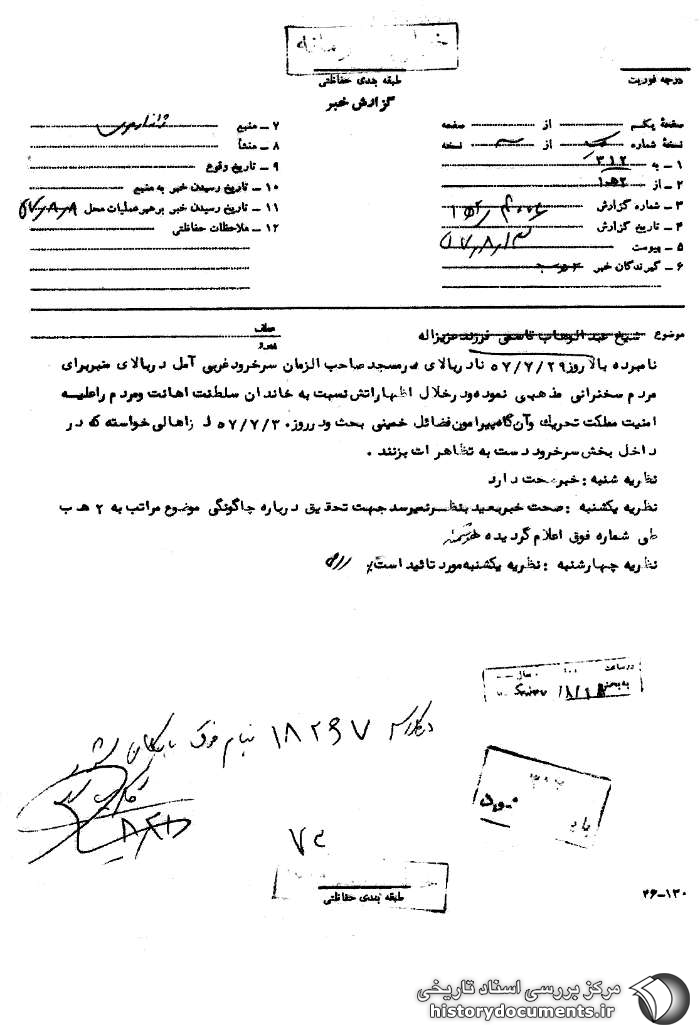 طبقه بندی حفاظتی
درجه فوریت
گزارش خبر
صفحهٔ یکم از صفحه
نسخهٔ شماره از نسخه
۱ ـ به ۳۱۲
۲ ـ از
۳ ـ شماره گزارش
۴ ـ تاریخ گزارش
۵ ـ پیوست
۶ ـ گیرندگان خبر
۷ ـ منبع
۸ ـ منشأ
۹ ـ تاریخ وقوع
۱۰ ـ تاریخ رسیدن خبر به منبع
۱۱ ـ تاریخ رسیدن خبر برهبر عملیات محل ۵۷/۸/۸
۱۲ ـ ملاحظات حفاظتی
موضوع شیخ عبدالوهاب قاسمی فرزند عزیزاله
عطف
نامبرده بالا روز ۵۷/۷/۲۹ در مسجد صاحب الزمان سرخرود غربی آمل در بالای منبر برای
مردم سخنرانی مذهبی نموده و در خلال اظهاراتش نسبت به خاندان سلطنت اهانت و مردم را علیه
امنیت مملکت تحریک و آن گاه پیرامون فضائل خمینی بحث و در روز ۵۷/۷/۳۰ از اهالی خواسته که در
داخل بخش سرخرود دست به تظاهرات بزنند .
نظریه شنبه : خبر صحت دارد
نظریه یکشنبه : صحت خبر بعید بنظر نمیرسد جهت تحقیق درباره چگونگی موضوع مراتب به ۲ هـ ب
طی شماره فوق اعلام گردیده
نظریه چهارشنبه : نظریه یکشنبه مورد تائید است
در ساعت
به بخش
۱۸۲۶۷
طبقه بندی حفاظتی
۲۶-۱۳۰
مرکز بررسی اسناد تاریخی
historydocuments.ir